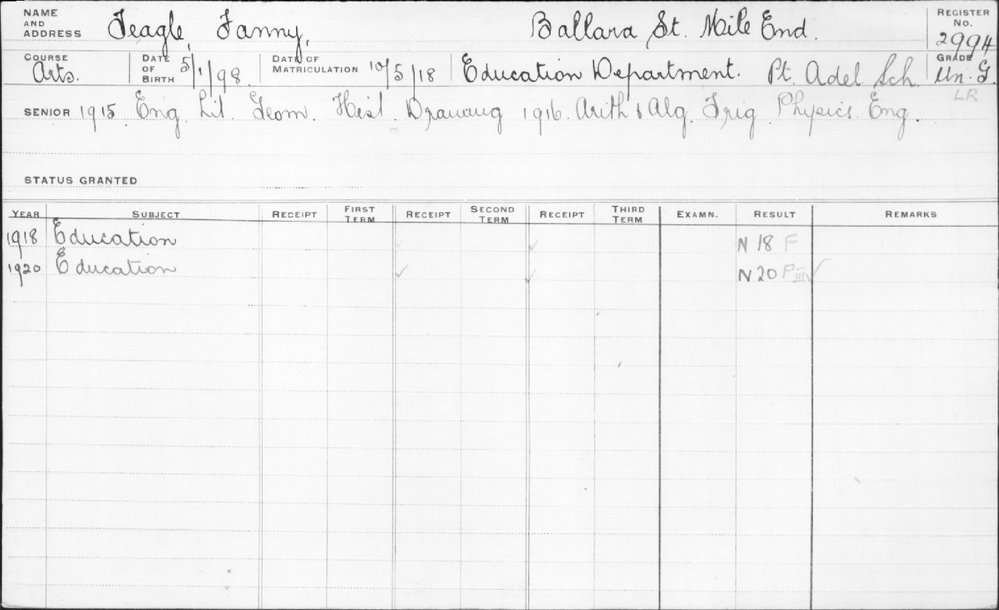 NAME AND ADDRESS Teagle, Fanny, Ballara St. Mile End. REGISTER No. 2994
COURSE Arts. DATE OF BIRTH 5/1/98 DATE OF MATRICULATION 10/5/18 Education Department. Pt. Adel Sch. GRADE Un. G.
LR
SENIOR 1915 Eng. Lit. Geom. Hist. Drawing 1916. Arith & Alg. Trig. Physics. Eng.
STATUS GRANTED
YEAR SUBJECT RECEIPT FIRST TERM RECEIPT SECOND TERM RECEIPT THIRD TERM EXAMN. RESULT REMARKS
1918 Education ✓ ✓ N 18 F
1920 Education ✓ ✓ N 20 P III ✓